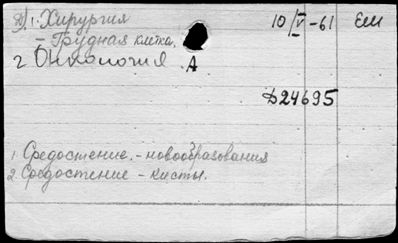 Д). 1. Хирургия 10/V-61 Еш
- Грудная клетка.
2. Онкология. А
Д24695
1. Средостение. - новообразования
2. Средостение - кисты.